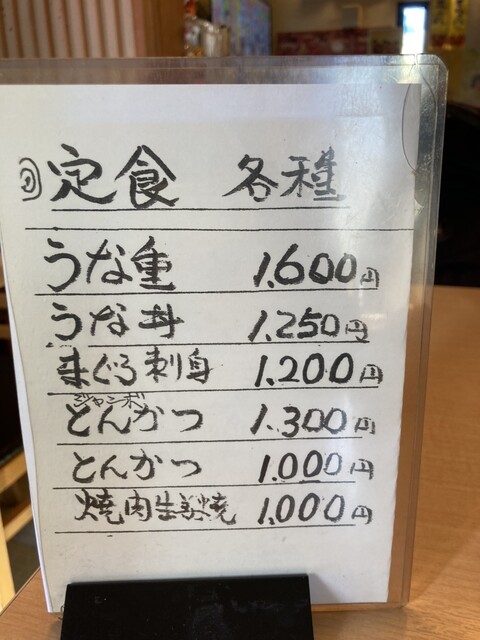 定食 各種
うな重 1.600円
うな丼 1.250円
まぐろ刺身 1.200円
ジャンボ
とんかつ 1.300円
とんかつ 1.000円
焼肉生姜焼 1.000円